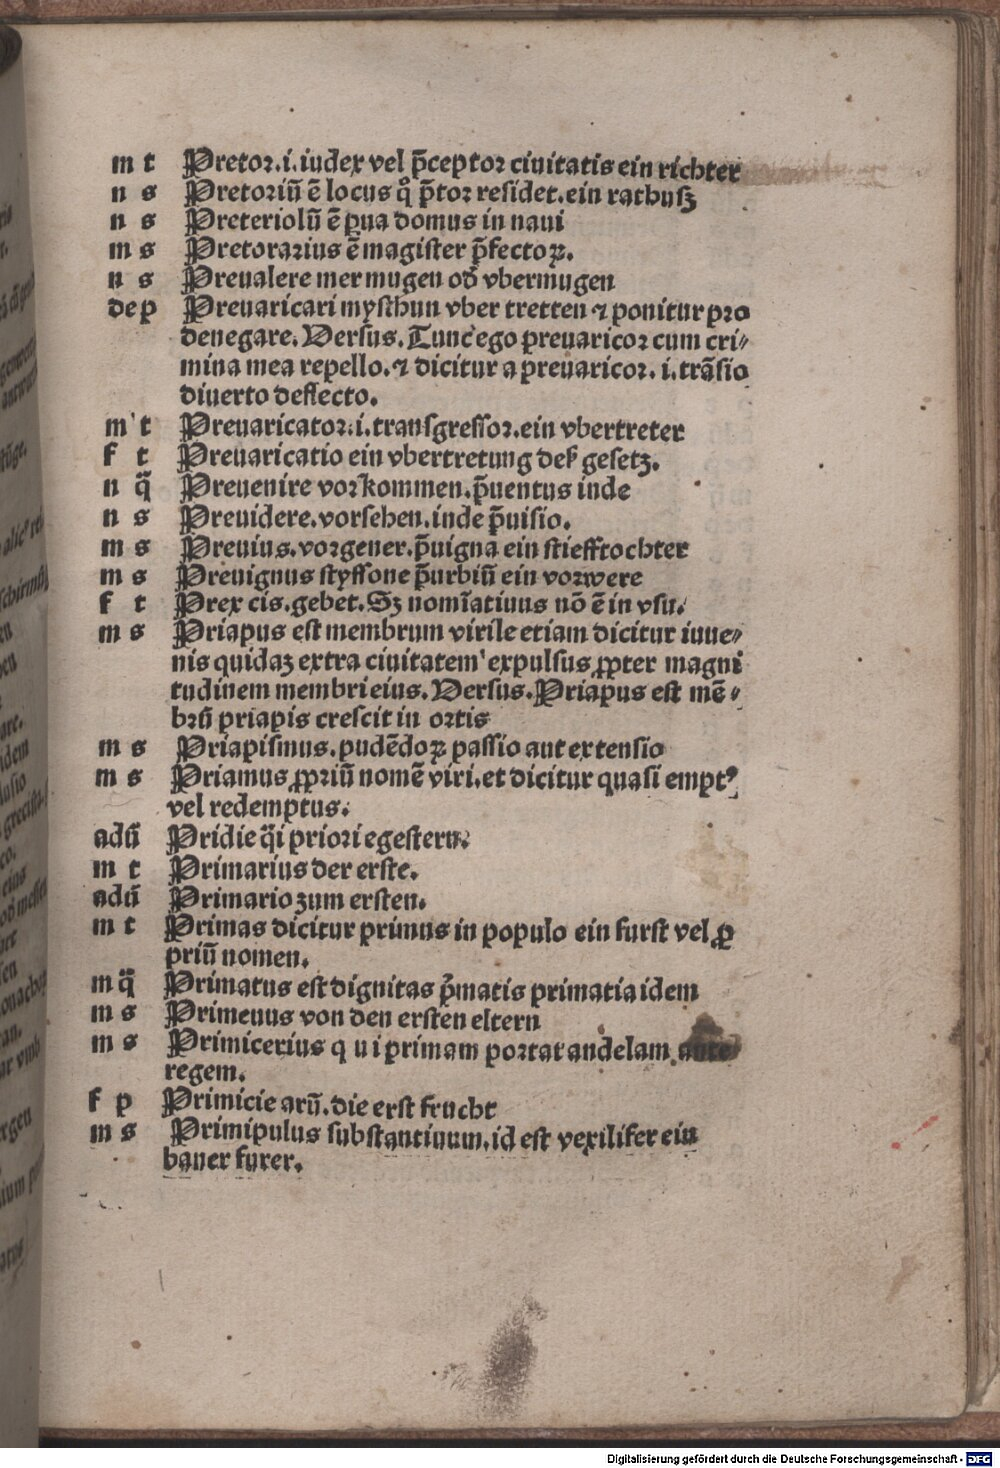 m t Pretor.i.iudex vel p̄ceptor ciuitatis ein richter
n s Pretoriū ē locus qͦ p̄tor residet.ein rathusꝫ
n s Preteriolū ē ꝑua domus in naui
m s Pretorarius ē magister p̄fectoꝝ.
n s Preualere mer mugen od̄ vbermugen
dep Preuaricari mysthun vber tretten ⁊ ponitur pro
denegare. Versus. Tunc ego preuaricor cum cri⸗
mina mea repello.⁊ dicitur a preuaricor.i.trāsio
diuerto deflecto.
m t Preuaricator.i.transgressor.ein vbertreter
f t Preuaricatio ein vbertretung deß gesetz.
n q̄ Preuenire vorkommen.p̄uentus inde
n s Preuidere.vorsehen.inde p̄uisio.
m s Preuius.vorgener.p̄uigna ein stiefftochter
m s Preuignus styffsone p̄urbiū ein vorwere
f t Prex cis.gebet.Sꝫ nomīatiuus nō ē in vsu.
m s Priapus est membrum virile etiam dicitur iuue⸗
nis quidaꝫ extra ciuitatem expulsus ꝓpter magni
tudinem membri eius. Versus. Priapus est mē⸗
brū priapis crescit in ortis
m s Priapismus.pudēdoꝝ passio aut extensio
m s Priamus ꝓpriū nomē viri.et dicitur quasi emptꝰ
vel redemptus.
adū Pridie q̄i priori egestern.
m t Primarius der erste.
adū Primario zum ersten.
m t Primas dicitur primus in populo ein furst vel ꝓ
priū nomen.
m q̄ Primatus est dignitas p̄matis primatia idem
m s Primeuus von den ersten eltern
m s Primicerius q u i primam portat andelam ante
regem.
f p Primicie arū.die erst frucht
m s Primipulus substantiuum.id est vexilifer ein
baner furer.
Digitalisierung gefördert durch die Deutsche Forschungsgemeinschaft - DFG